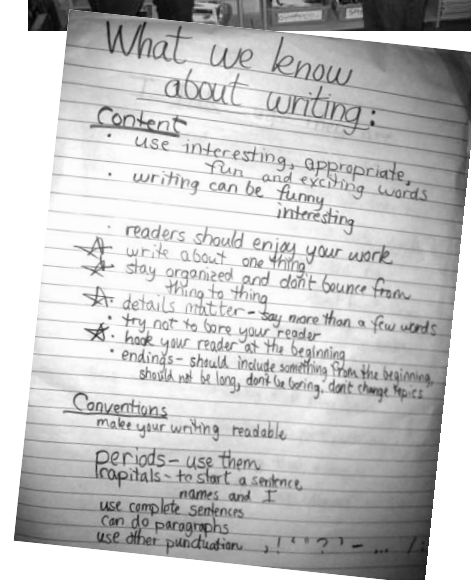 What we know
about writing:
Content
· use interesting, appropriate,
fun and exciting words
· writing can be funny
interesting
· readers should enjoy your work
☆· write about one thing
☆· stay organized and don't bounce from
thing to thing
☆· details matter - say more than a few words
· try not to bore your reader
☆· hook your reader at the beginning
· endings - should include something from the beginning,
should not be long, don't be boring, don't change topics
Conventions
make your writing readable
periods - use them
capitals - to start a sentence
names and I
use complete sentences
can do paragraphs
use other punctuation , ! ' " ? ' - ... / :